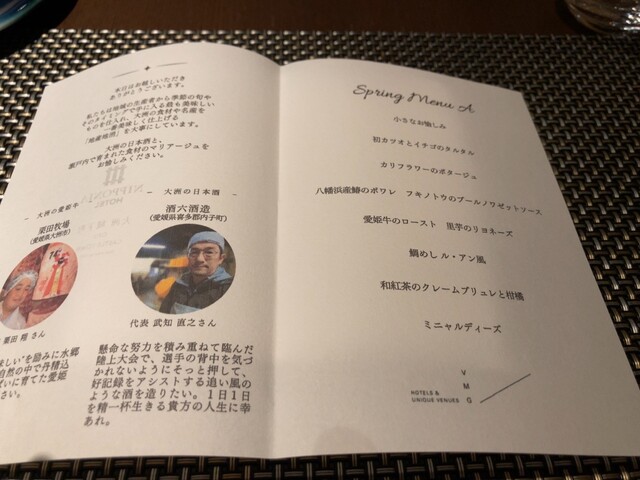 本日はお越しいただき
ありがとうございます。
私たちは地域の生産者から季節の旬や
そのタイミングで手に入る最も美味しい
ものを仕入れ、大洲の食材や名産を
一番美味しく仕上げる
「地産地消」を大事にしています。
大洲の日本酒と、
瀬戸内で育まれた食材のマリアージュを
お愉しみください。
- 大洲の愛姫牛
栗田牧場
(愛媛県大洲市)
栗田 翔 さん
味しい"を励みに水郷
自然の中で丹精込
ぱいに育てた愛姫
さい。
- 大洲の日本酒 -
酒六酒造
(愛媛県喜多郡内子町)
代表 武知 直之さん
懸命な努力を積み重ねて臨んだ
陸上大会で、選手の背中を気づ
かれないようにそっと押して、
好記録をアシストする追い風の
ような酒を造りたい。1日1日
を精一杯生きる貴方の人生に幸
あれ。
Spring Menu A
小さなお愉しみ
初カツオとイチゴのタルタル
カリフラワーのポタージュ
八幡浜産鰆のポワレ フキノトウのブールノワゼットソース
愛姫牛のロースト 里芋のリヨネーズ
鯛めし ル・アン風
和紅茶のクレームブリュレと柑橘
ミニャルディーズ
VMG
HOTELS &
UNIQUE VENUES